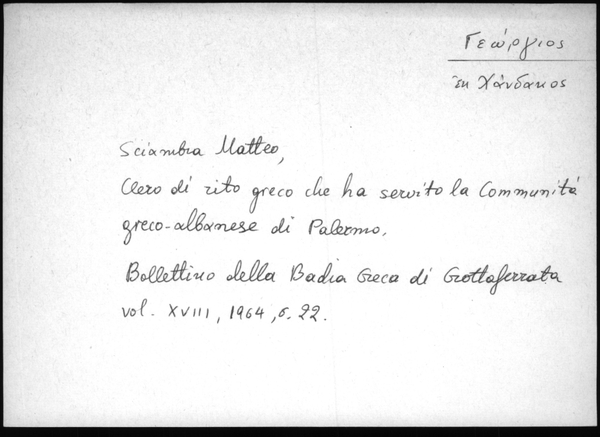 Γεώργιος
ἐκ Χάνδακος
Sciambra Matteo,
Clero di rito greco che ha servito la Communitá
greco-albanese di Palermo.
Bollettino della Badia Greca di Grottaferrata
vol. XVIII, 1964, σ. 22.